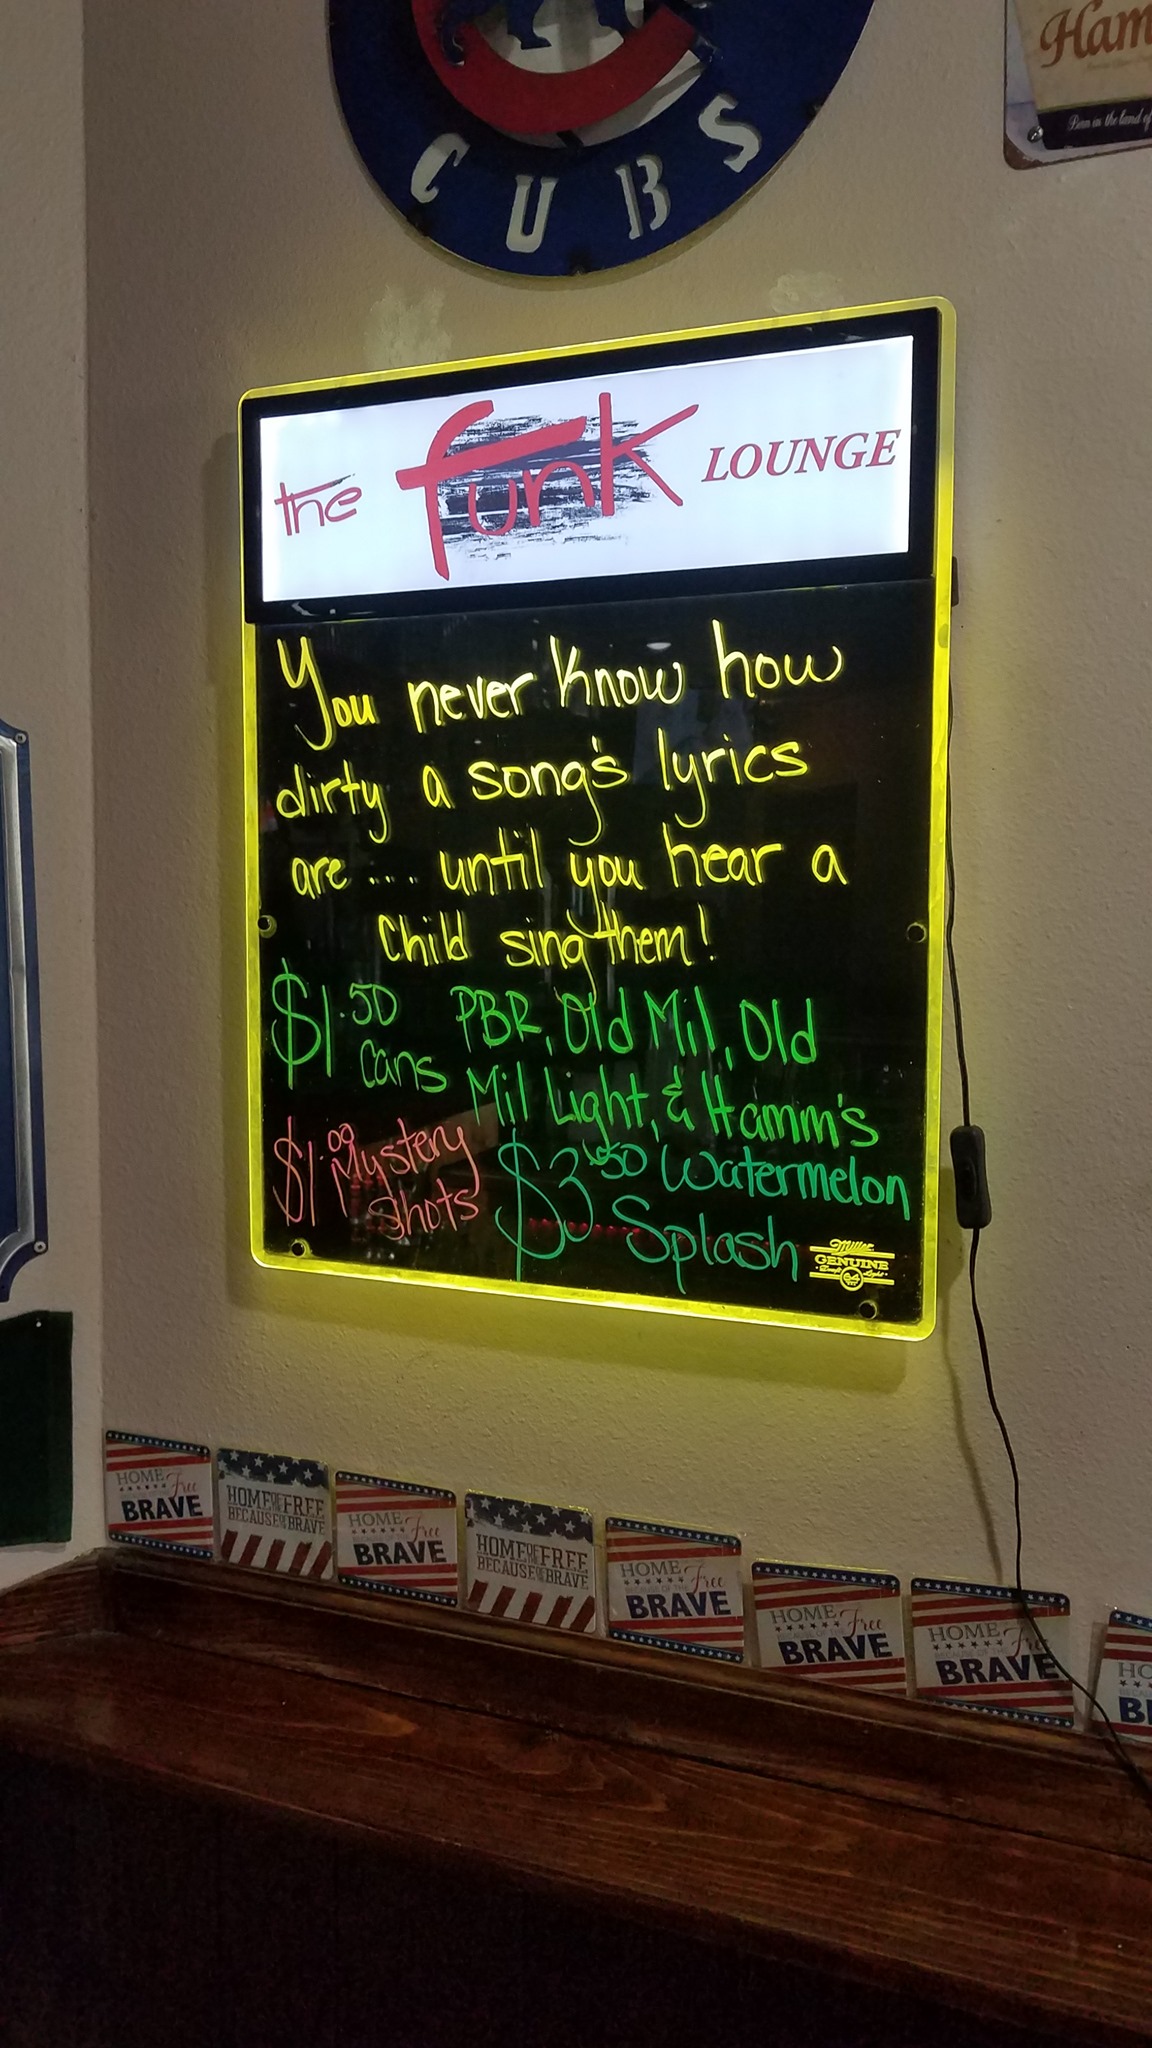 CUBS
Ham
Born in the land of
the funk LOUNGE
You never know how
dirty a song's lyrics
are .... until you hear a
Child sing them!
$1.50 cans PBR, Old Mil, Old
Mil Light, & Hamm's
$1.00 Mystery Shots
$3.50 Watermelon
Splash
Miller
GENUINE
Draft Light
64
HOME Free
BRAVE
HOME OF THE FREE
BECAUSE OF THE BRAVE
HOME Free
BRAVE
HOME OF THE FREE
BECAUSE OF THE BRAVE
HOME Free
BECAUSE OF THE
BRAVE
HOME Free
BECAUSE OF THE
BRAVE
HOME Free
BECAUSE OF THE
BRAVE
HO
B